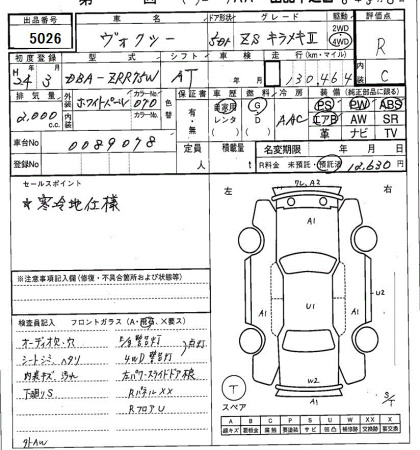 出品番号 車名 ドア形状 グレード 駆動 評価点
5026 ヴォクシー 5DH ZS キラメキⅡ 2WD 4WD R
初度登録 年 月 型式 シフト 車検 走行(km・マイル)
H24 3 DBA-ZRR75W AT 年 月 130,464 C
内装
排気量 外装 カラーNo 色替 保証書 車歴 燃料 冷房 装備(純正部品に限る)
2,000 c.c. ホワイトパール 070 有・無 自家用 レンタ G D AAC PS PW ABS
内装 カラーNo エアB AW SR
革 ナビ TV
車台No 0089078 定員 積載量 名変期限 年 月 日
登録No 人 t R料金 未預託・預託済 12,630 円
セールスポイント
☆寒冷地仕様
左 右
フレ,A2
A1
A1 U1 A1 U2
W2
A1
※注意事項記入欄(修復・不具合箇所および状態等)
検査員記入 フロントガラス(A・飛石、×要ス)
オーディオ欠、穴
シートシミ、ヘタリ 4WD 警告灯 点灯
内装キズ、汚れ 左パワースライドドア不良
下廻りS RパネルXX
RフロアU
外AW
T
スペア
S/T
A B C P S U W X XX
線キズ 要板金 腐触 要塗装 サビ 凹凸 補修跡 要交換 交換済